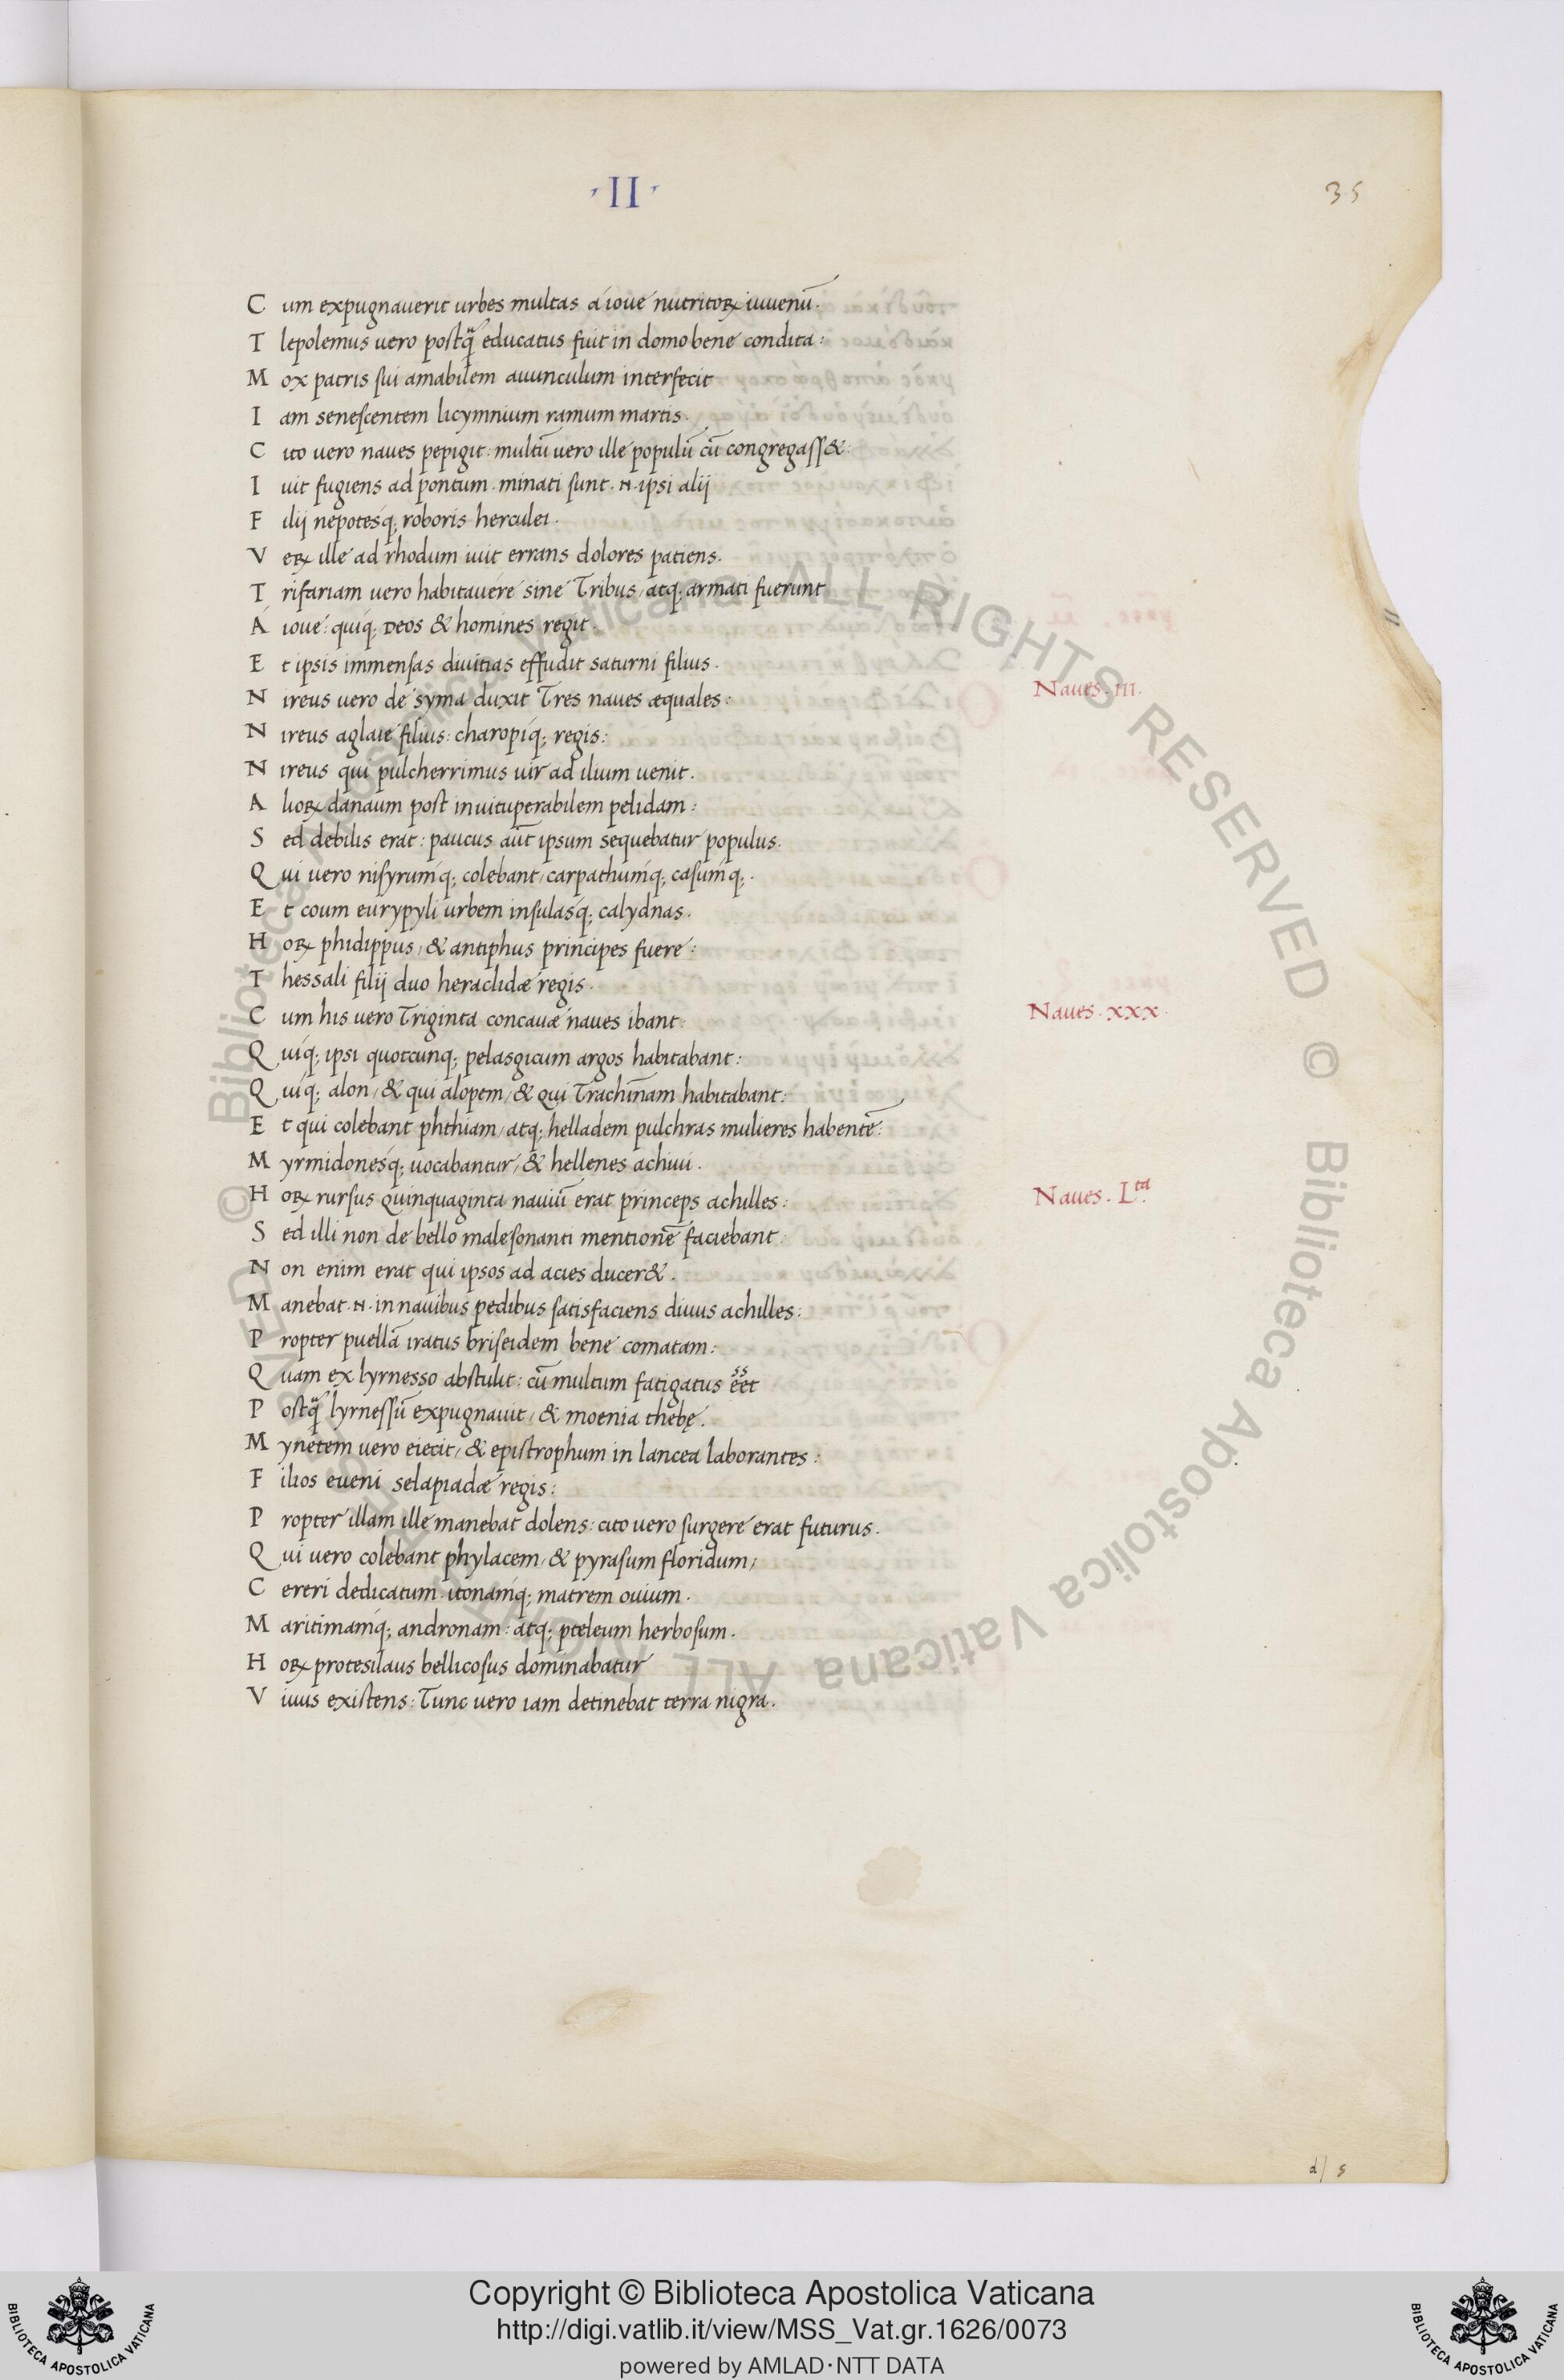 · II ·
35
C um expugnauerit urbes multas a ioue nutritoꝝ iuuenū.
T lepolemus uero postq̄ educatus fuit in domo bene condita:
M ox patris sui amabilem auunculum interfecit
I am senescentem licymnium ramum martis.
C ito uero naues pepigit: multū uero ille populū cū congregass&:
I uit fugiens ad pontum. minati sunt. N. ipsi alij
F ilij nepotesq; roboris herculei.
V eꝝ ille ad rhodum iuit errans dolores patiens.
T rifariam uero habitauere sine Tribus, atq; armati fuerunt
Á ioue: quiq; Deos & homines regit.
E t ipsis immensas diuitias effudit saturni filius.
N ireus uero de syma duxit Tres naues æquales:
Naues. III.
N ireus aglaie filius: charopiq; regis:
N ireus qui pulcherrimus uir ad ilium uenit.
A lioꝝ danaum post inuituperabilem pelidam:
S ed debilis erat: paucus aut̄ ipsum sequebatur populus.
Q ui uero nisyrumq; colebant, carpathumq; casumq;.
E t coum eurypyli urbem insulasq; calydnas.
H oꝝ phidippus, & antiphus principes fuere:
T hessali filij duo heraclidæ regis.
C um his uero Triginta concauæ naues ibant:
Naues. xxx.
Q uiq; ipsi quotcunq; pelasgicum argos habitabant:
Q uiq; alon, & qui alopem, & qui Trachinam habitabant:
E t qui colebant phthiam, atq; helladem pulchras mulieres habentē:
M yrmidonesq; uocabantur, & hellenes achiui.
H oꝝ rursus quinquaginta nauiū erat princeps achilles:
Naues. Lta.
S ed illi non de bello malesonanti mentionē faciebant:
N on enim erat qui ipsos ad acies ducer&.
M anebat. N. in nauibus pedibus satisfaciens diuus achilles:
P ropter puellā iratus briseidem bene comatam:
Q uam ex lyrnesso abstulit: cū multum fatigatus eēt
ss
P ostq̄ lyrnessū expugnauit, & moenia thebę.
M ynetem uero eiecit, & epistrophum in lancea laborantes:
F ilios eueni selapiadæ regis:
P ropter illam ille manebat dolens: cito uero surgere erat futurus.
Q ui uero colebant phylacem, & pyrasum floridum,
C ereri dedicatum. itonamq; matrem ouium.
M aritimamq; andronam: atq; pteleum herbosum.
H oꝝ protesilaus bellicosus dominabatur
V iuus existens: Tunc uero iam detinebat terra nigra.
d/ 5
© Biblioteca Apostolica Vaticana ALL RIGHTS RESERVED © Biblioteca Apostolica Vaticana ALL RIGHTS RESERVED
Copyright © Biblioteca Apostolica Vaticana
http://digi.vatlib.it/view/MSS_Vat.gr.1626/0073
powered by AMLAD·NTT DATA
BIBLIOTECA APOSTOLICA VATICANA
BIBLIOTECA APOSTOLICA VATICANA